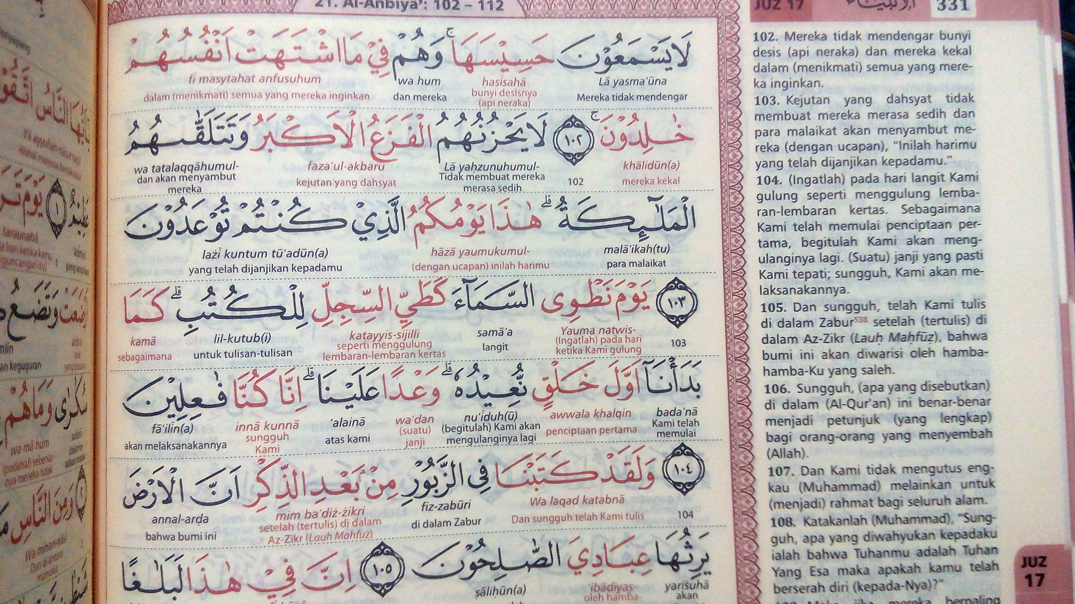 21. Al-Anbiya': 102 – 112
JUZ 17
الأنبياء
331
لَا يَسْمَعُوْنَ حَسِيْسَهَا ۚ وَهُمْ فِيْ مَا اشْتَهَتْ اَنْفُسُهُمْ
fī masytahat anfusuhum wa hum hasīsahā Lā yasma'ūna
dalam (menikmati) semua yang mereka inginkan dan mereka bunyi desisnya (api neraka) Mereka tidak mendengar
خٰلِدُوْنَ ۚ ١٠٢ لَا يَحْزُنُهُمُ الْفَزَعُ الْاَكْبَرُ وَتَتَلَقّٰىهُمُ
wa tatalaqqāhumul- faza'ul-akbaru Lā yahzunuhumul- khālidūn(a)
dan akan menyambut mereka kejutan yang dahsyat Tidak membuat mereka merasa sedih 102 mereka kekal
الْمَلٰۤىِٕكَةُ ۗ هٰذَا يَوْمُكُمُ الَّذِيْ كُنْتُمْ تُوْعَدُوْنَ
lażī kuntum tū'adūn(a) hāżā yaumukumul- malā'ikah(tu)
yang telah dijanjikan kepadamu (dengan ucapan) inilah harimu para malaikat
١٠٣ يَوْمَ نَطْوِى السَّمَاۤءَ كَطَيِّ السِّجِلِّ لِلْكُتُبِ ۗ كَمَا
kamā lil-kutub(i) kaṭayyis-sijilli samā'a Yauma naṭwis-
sebagaimana untuk tulisan-tulisan seperti menggulung lembaran-lembaran kertas langit (Ingatlah) pada hari ketika Kami gulung 103
بَدَأْنَآ اَوَّلَ خَلْقٍ نُّعِيْدُهٗ ۗ وَعْدًا عَلَيْنَا ۗ اِنَّا كُنَّا فٰعِلِيْنَ
fā'ilīn(a) innā kunnā 'alainā wa'dan nu'īduh(ū) awwala khalqin bada'nā
akan melaksanakannya sungguh Kami atas kami (suatu) janji (begitulah) Kami akan mengulanginya lagi penciptaan pertama Kami telah memulai
١٠٤ وَلَقَدْ كَتَبْنَا فِى الزَّبُوْرِ مِنْۢ بَعْدِ الذِّكْرِ اَنَّ الْاَرْضَ
annal-arḍa mim ba'diż-żikri fiz-zabūri Wa laqad katabnā
bahwa bumi ini setelah (tertulis) di dalam Az-Zikr (Lauh Mahfuz) di dalam Zabur Dan sungguh telah Kami tulis 104
يَرِثُهَا عِبَادِيَ الصّٰلِحُوْنَ ١٠٥ اِنَّ فِيْ هٰذَا لَبَلٰغًا
ṣālihūn(a) 'ibādiyaṣ- yariṡuhā
oleh hamba akan
102. Mereka tidak mendengar bunyi
desis (api neraka) dan mereka kekal
dalam (menikmati) semua yang mere-
ka inginkan.
103. Kejutan yang dahsyat tidak
membuat mereka merasa sedih dan
para malaikat akan menyambut me-
reka (dengan ucapan), "Inilah harimu
yang telah dijanjikan kepadamu."
104. (Ingatlah) pada hari langit Kami
gulung seperti menggulung lemba-
ran-lembaran kertas. Sebagaimana
Kami telah memulai penciptaan per-
tama, begitulah Kami akan meng-
ulanginya lagi. (Suatu) janji yang pasti
Kami tepati; sungguh, Kami akan me-
laksanakannya.
105. Dan sungguh, telah Kami tulis
di dalam Zabur⁵³⁸ setelah (tertulis) di
dalam Az-Zikr (Lauh Mahfuz), bahwa
bumi ini akan diwarisi oleh hamba-
hamba-Ku yang saleh.
106. Sungguh, (apa yang disebutkan)
di dalam (Al-Qur'an) ini benar-benar
menjadi petunjuk (yang lengkap)
bagi orang-orang yang menyembah
(Allah).
107. Dan Kami tidak mengutus eng-
kau (Muhammad) melainkan untuk
(menjadi) rahmat bagi seluruh alam.
108. Katakanlah (Muhammad), "Sung-
guh, apa yang diwahyukan kepadaku
ialah bahwa Tuhanmu adalah Tuhan
Yang Esa maka apakah kamu telah
berserah diri (kepada-Nya)?"
JUZ
17